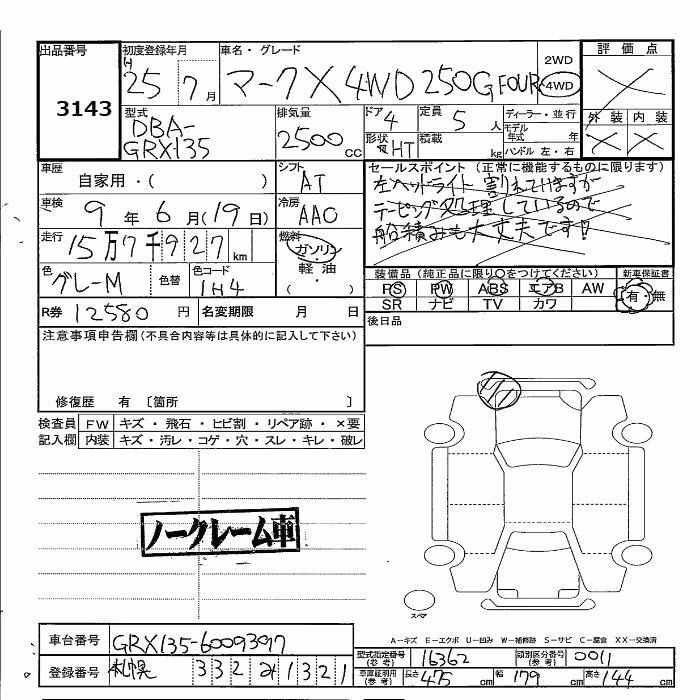 出品番号
3143
初度登録年月
H 25年 7月
車名・グレード
マークX 4WD 250G FOUR
2WD
4WD
評価点
外装 内装
型式
DBA-
GRX135
排気量
2500 cc
ドア 4
形状 HT
定員 5 人
積載 kg
ディーラー・並行
モデル年式 年
ハンドル 左・右
車歴
自家用・( )
シフト
AT
セールスポイント (正常に機能するものに限ります)
左ヘッドライト割れていますが
テーピング処理しているので
船積みも大丈夫です!
車検
9年 6月(19日)
冷房
AAC
走行
15万7千927km
燃料
ガソリン
軽油
( )
色
グレーM
色替
色コード
1H4
装備品(純正品に限り○をつけてください)
新車保証書
PS PW ABS エアB AW
SR ナビ TV カワ
有・無
R券 12580円
名変期限 月 日
後日品
注意事項申告欄(不具合内容等は具体的に記入して下さい)
修復歴 有〔箇所 〕
検査員
記入欄
FW キズ・飛石・ヒビ割・リペア跡・×要
内装 キズ・汚レ・コゲ・穴・スレ・キレ・破レ
ノークレーム車
スペア
A-キズ E-エクボ U-凹み W-補修跡 S-サビ C-腐食 XX-交換済
車台番号
GRX135-6009397
登録番号
札幌 332 み 1321
型式指定番号
(参考)
16362
類別区分番号
(参考)
0011
車庫証明用
(参考)
長さ 475cm
幅 179cm
高さ 144cm